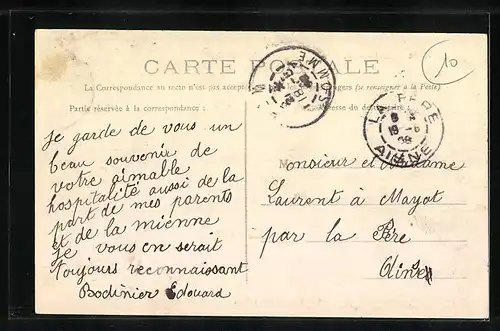 10
CARTE POSTALE
La Correspondance au recto n'est pas acceptée
(se renseigner à la Poste)
Partie réservée à la correspondance :
Adresse du destinataire
SOMME
LA FERE
AISNE
Je garde de vous un
beau souvenir de
votre aimable
hospitalité aussi de la
part de mes parents
et de la mienne
Je vous en serait
toujours reconnaissant
Bodinier Edouard
Monsieur et Madame
Laurent à Mayot
par la Fère
Aisne